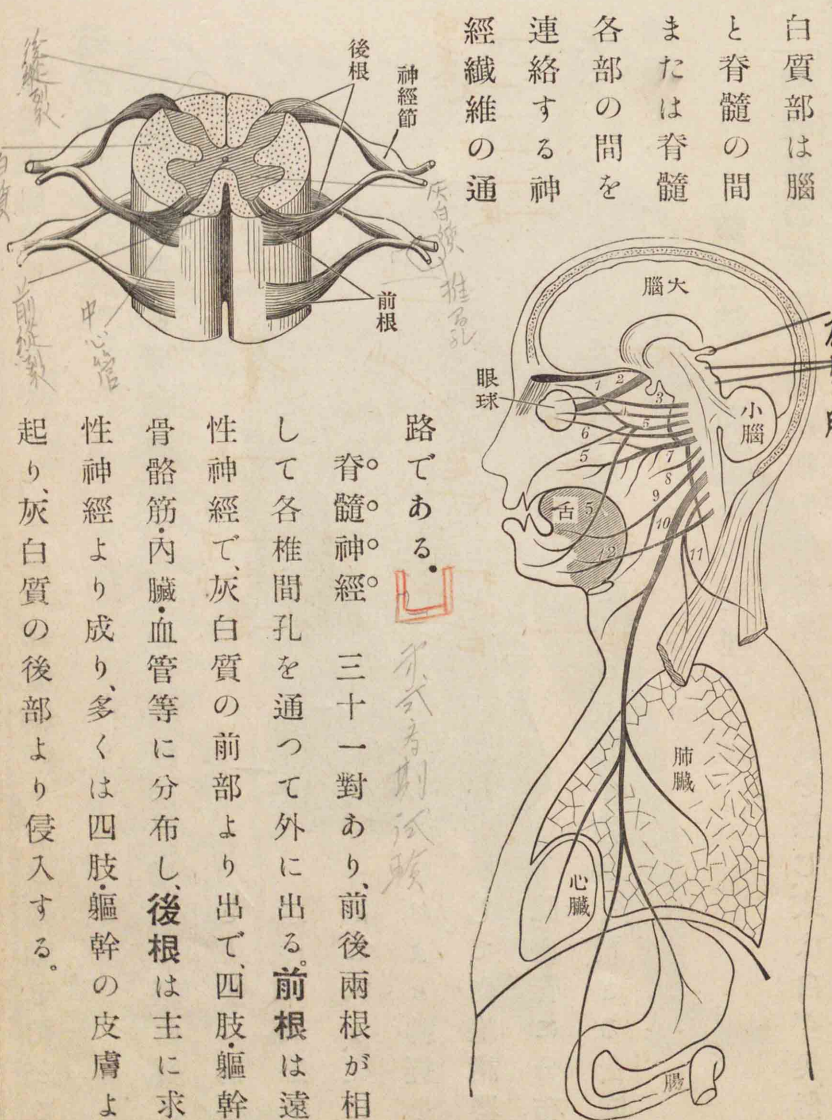 白質部は腦
と脊髓の間
または脊髓
各部の間を
連絡する神
經纖維の通
路である。
脊髓神經 三十一對あり、前後兩根が相
して各椎間孔を通つて外に出る。前根は遠
性神經で、灰白質の前部より出で、四肢・軀幹
骨骼筋・內臟・血管等に分布し、後根は主に求
性神經より成り、多くは四肢・軀幹の皮膚よ
起り、灰白質の後部より侵入する。
神經節
後根
前根
後縱裂
灰白質
椎孔
中心管
前縱裂
大腦
小腦
眼球
舌
肺臟
心臟
腸
1
2
3
4
5
6
5
7
8
9
10
11
5
12